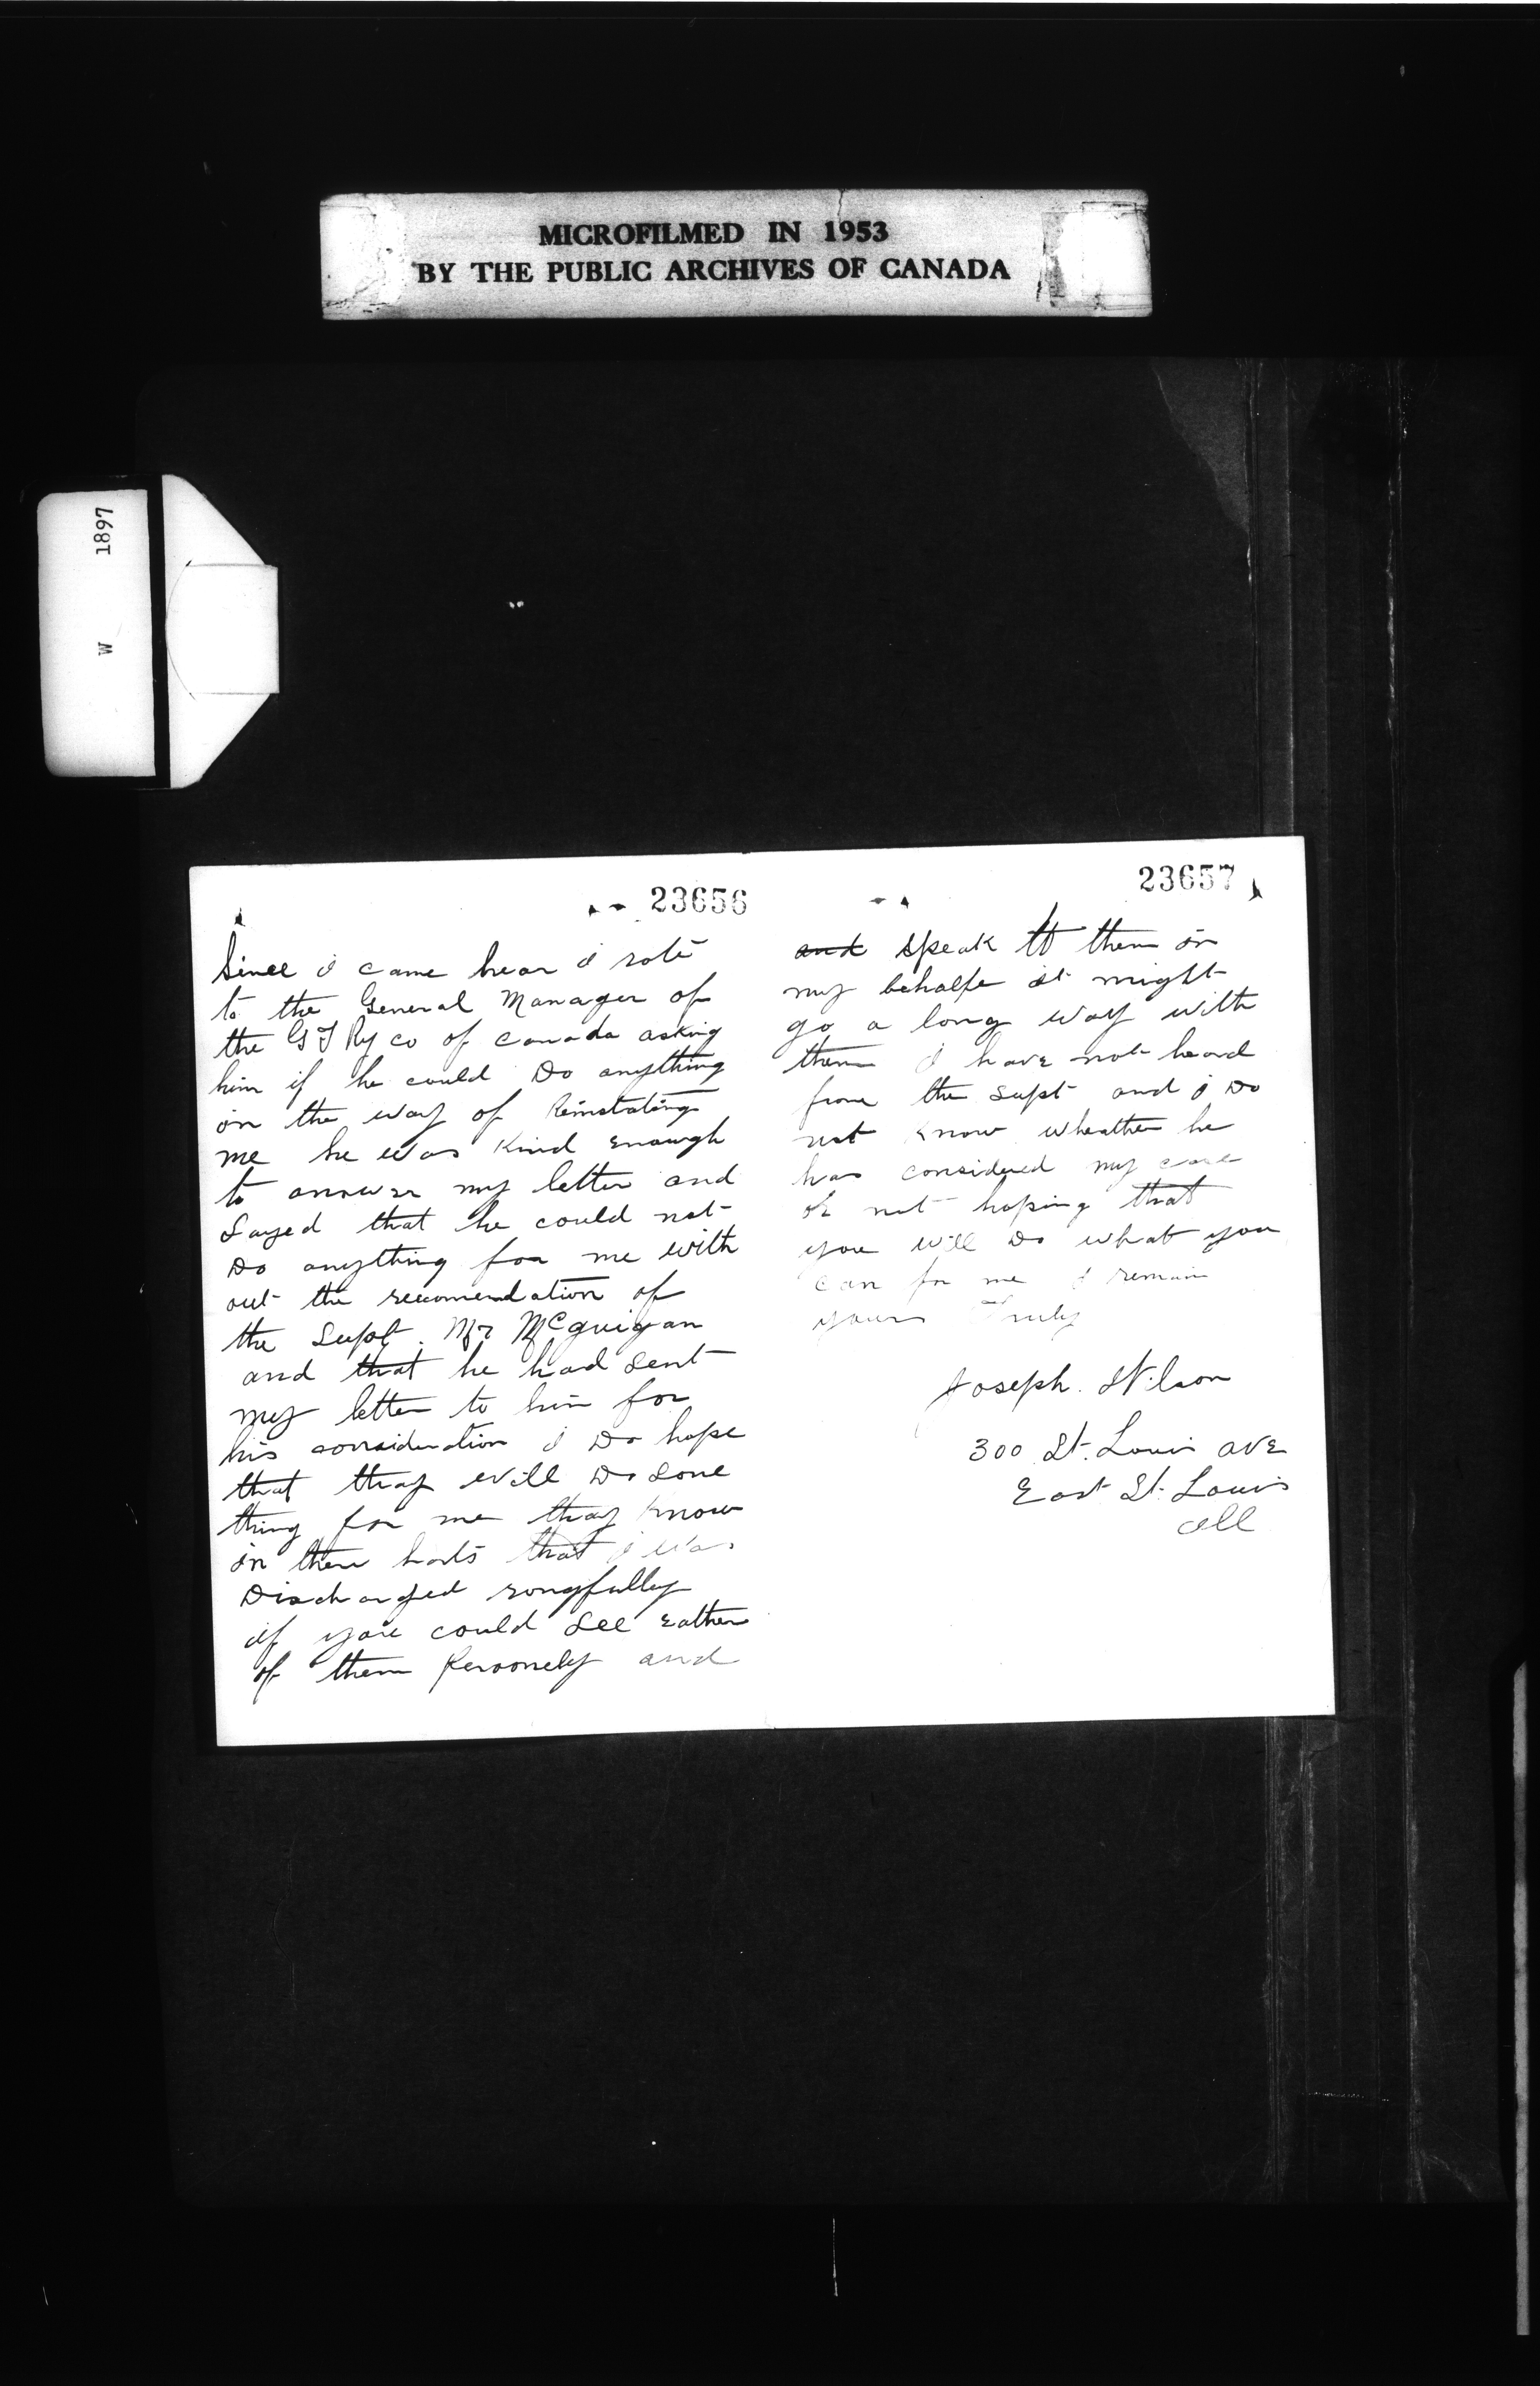 MICROFILMED IN 1953
BY THE PUBLIC ARCHIVES OF CANADA
W 1897
23656
Since i came hear i rote
to the General Manager of
the GT Ry co of canada asking
him if he could Do anything
in the way of Reinstating
me he was Kind enough
to answer my letter and
Sayed that he could not
Do anything for me with
out the recomendation of
the Supt. Mr McGuigan
and that he had sent
my letter to him for
his consideration i Do hope
that thay will Do some
thing for me thay know
in there harts that i was
Discharged rongfully
if you could See Eather
of them Personely and
23657
and Speak to them in
my behalfe it might
go a long way with
them I have not heard
from the Supt and i Do
not know wheather he
has considered my case
or not hoping that
you will Do what you
can for me I remain
yours Truly
Joseph. Wilson
300 St. Louis ave
East St. Louis
Ill